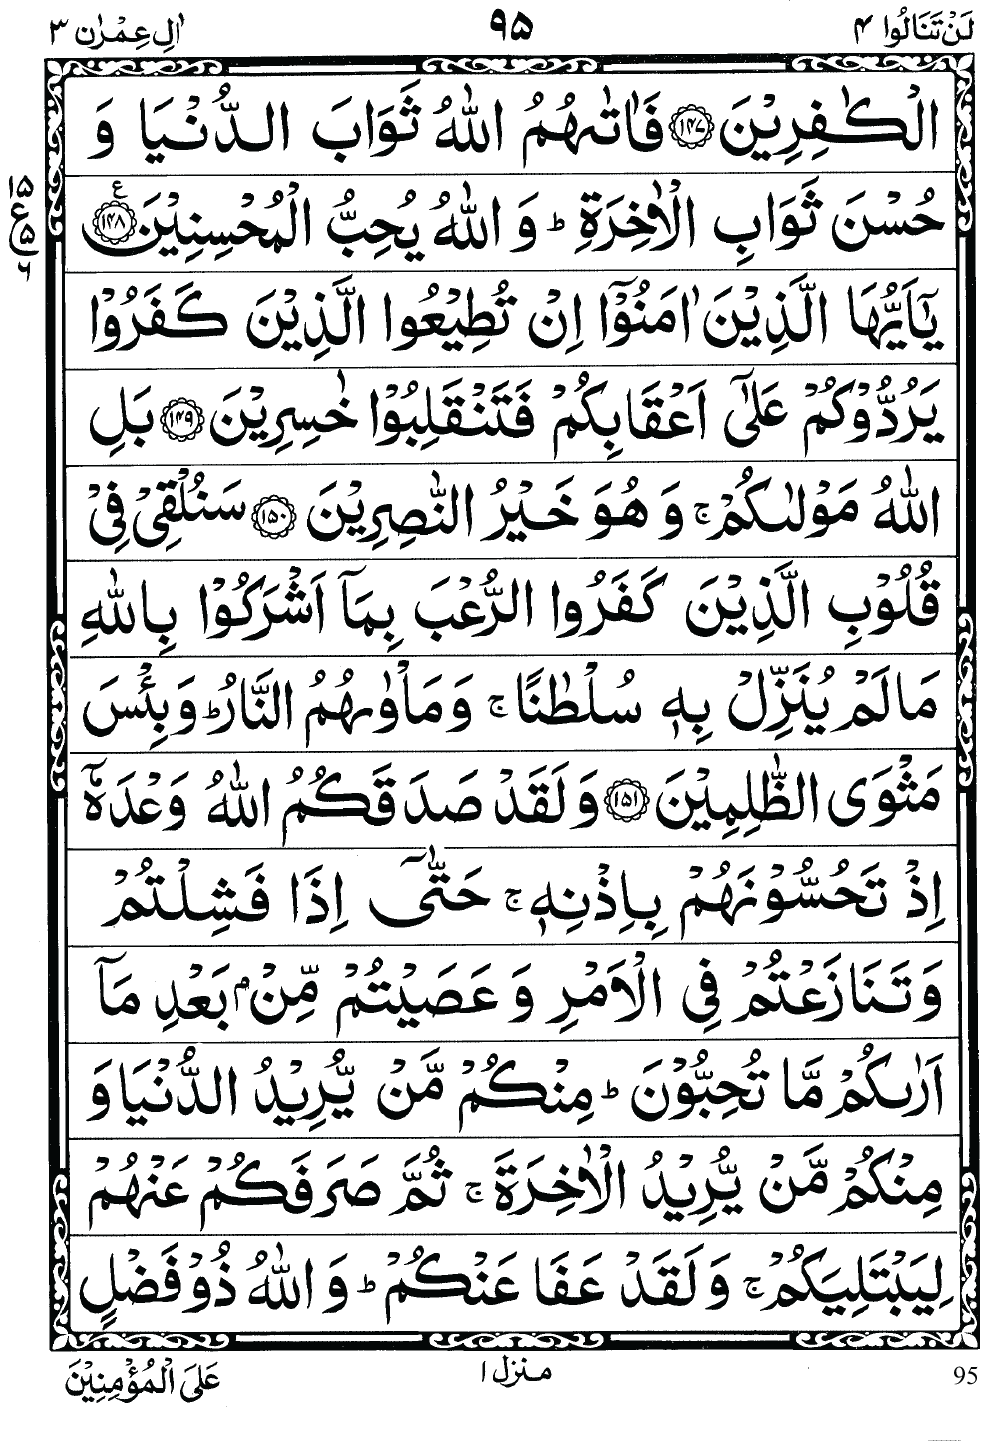 لَنْ تَنَالُوا ۴
۹۵
اٰلِ عِمْرٰن ۳
الْكٰفِرِيْنَ ۝۱۴۷ فَاٰتٰىهُمُ اللّٰهُ ثَوَابَ الدُّنْيَا وَ
حُسْنَ ثَوَابِ الْاٰخِرَةِ ؕ وَ اللّٰهُ يُحِبُّ الْمُحْسِنِيْنَ ۝۱۴۸ ع
۱۵
ع
۵
۶
يٰۤاَيُّهَا الَّذِيْنَ اٰمَنُوْۤا اِنْ تُطِيْعُوا الَّذِيْنَ كَفَرُوْا
يَرُدُّوْكُمْ عَلٰۤى اَعْقَابِكُمْ فَتَنْقَلِبُوْا خٰسِرِيْنَ ۝۱۴۹ بَلِ
اللّٰهُ مَوْلٰىكُمْ ۚ وَ هُوَ خَيْرُ النّٰصِرِيْنَ ۝۱۵۰ سَنُلْقِيْ فِيْ
قُلُوْبِ الَّذِيْنَ كَفَرُوا الرُّعْبَ بِمَاۤ اَشْرَكُوْا بِاللّٰهِ
مَا لَمْ يُنَزِّلْ بِهٖ سُلْطٰنًا ۚ وَ مَاْوٰىهُمُ النَّارُ ؕ وَ بِئْسَ
مَثْوَى الظّٰلِمِيْنَ ۝۱۵۱ وَ لَقَدْ صَدَقَكُمُ اللّٰهُ وَعْدَهٗۤ
اِذْ تَحُسُّوْنَهُمْ بِاِذْنِهٖ ۚ حَتّٰۤى اِذَا فَشِلْتُمْ
وَ تَنَازَعْتُمْ فِي الْاَمْرِ وَ عَصَيْتُمْ مِّنْۢ بَعْدِ مَاۤ
اَرٰىكُمْ مَّا تُحِبُّوْنَ ؕ مِنْكُمْ مَّنْ يُّرِيْدُ الدُّنْيَا وَ
مِنْكُمْ مَّنْ يُّرِيْدُ الْاٰخِرَةَ ۚ ثُمَّ صَرَفَكُمْ عَنْهُمْ
لِيَبْتَلِيَكُمْ ۚ وَ لَقَدْ عَفَا عَنْكُمْ ؕ وَ اللّٰهُ ذُوْ فَضْلٍ
95
منزل ۱
عَلَى الْمُؤْمِنِيْنَ